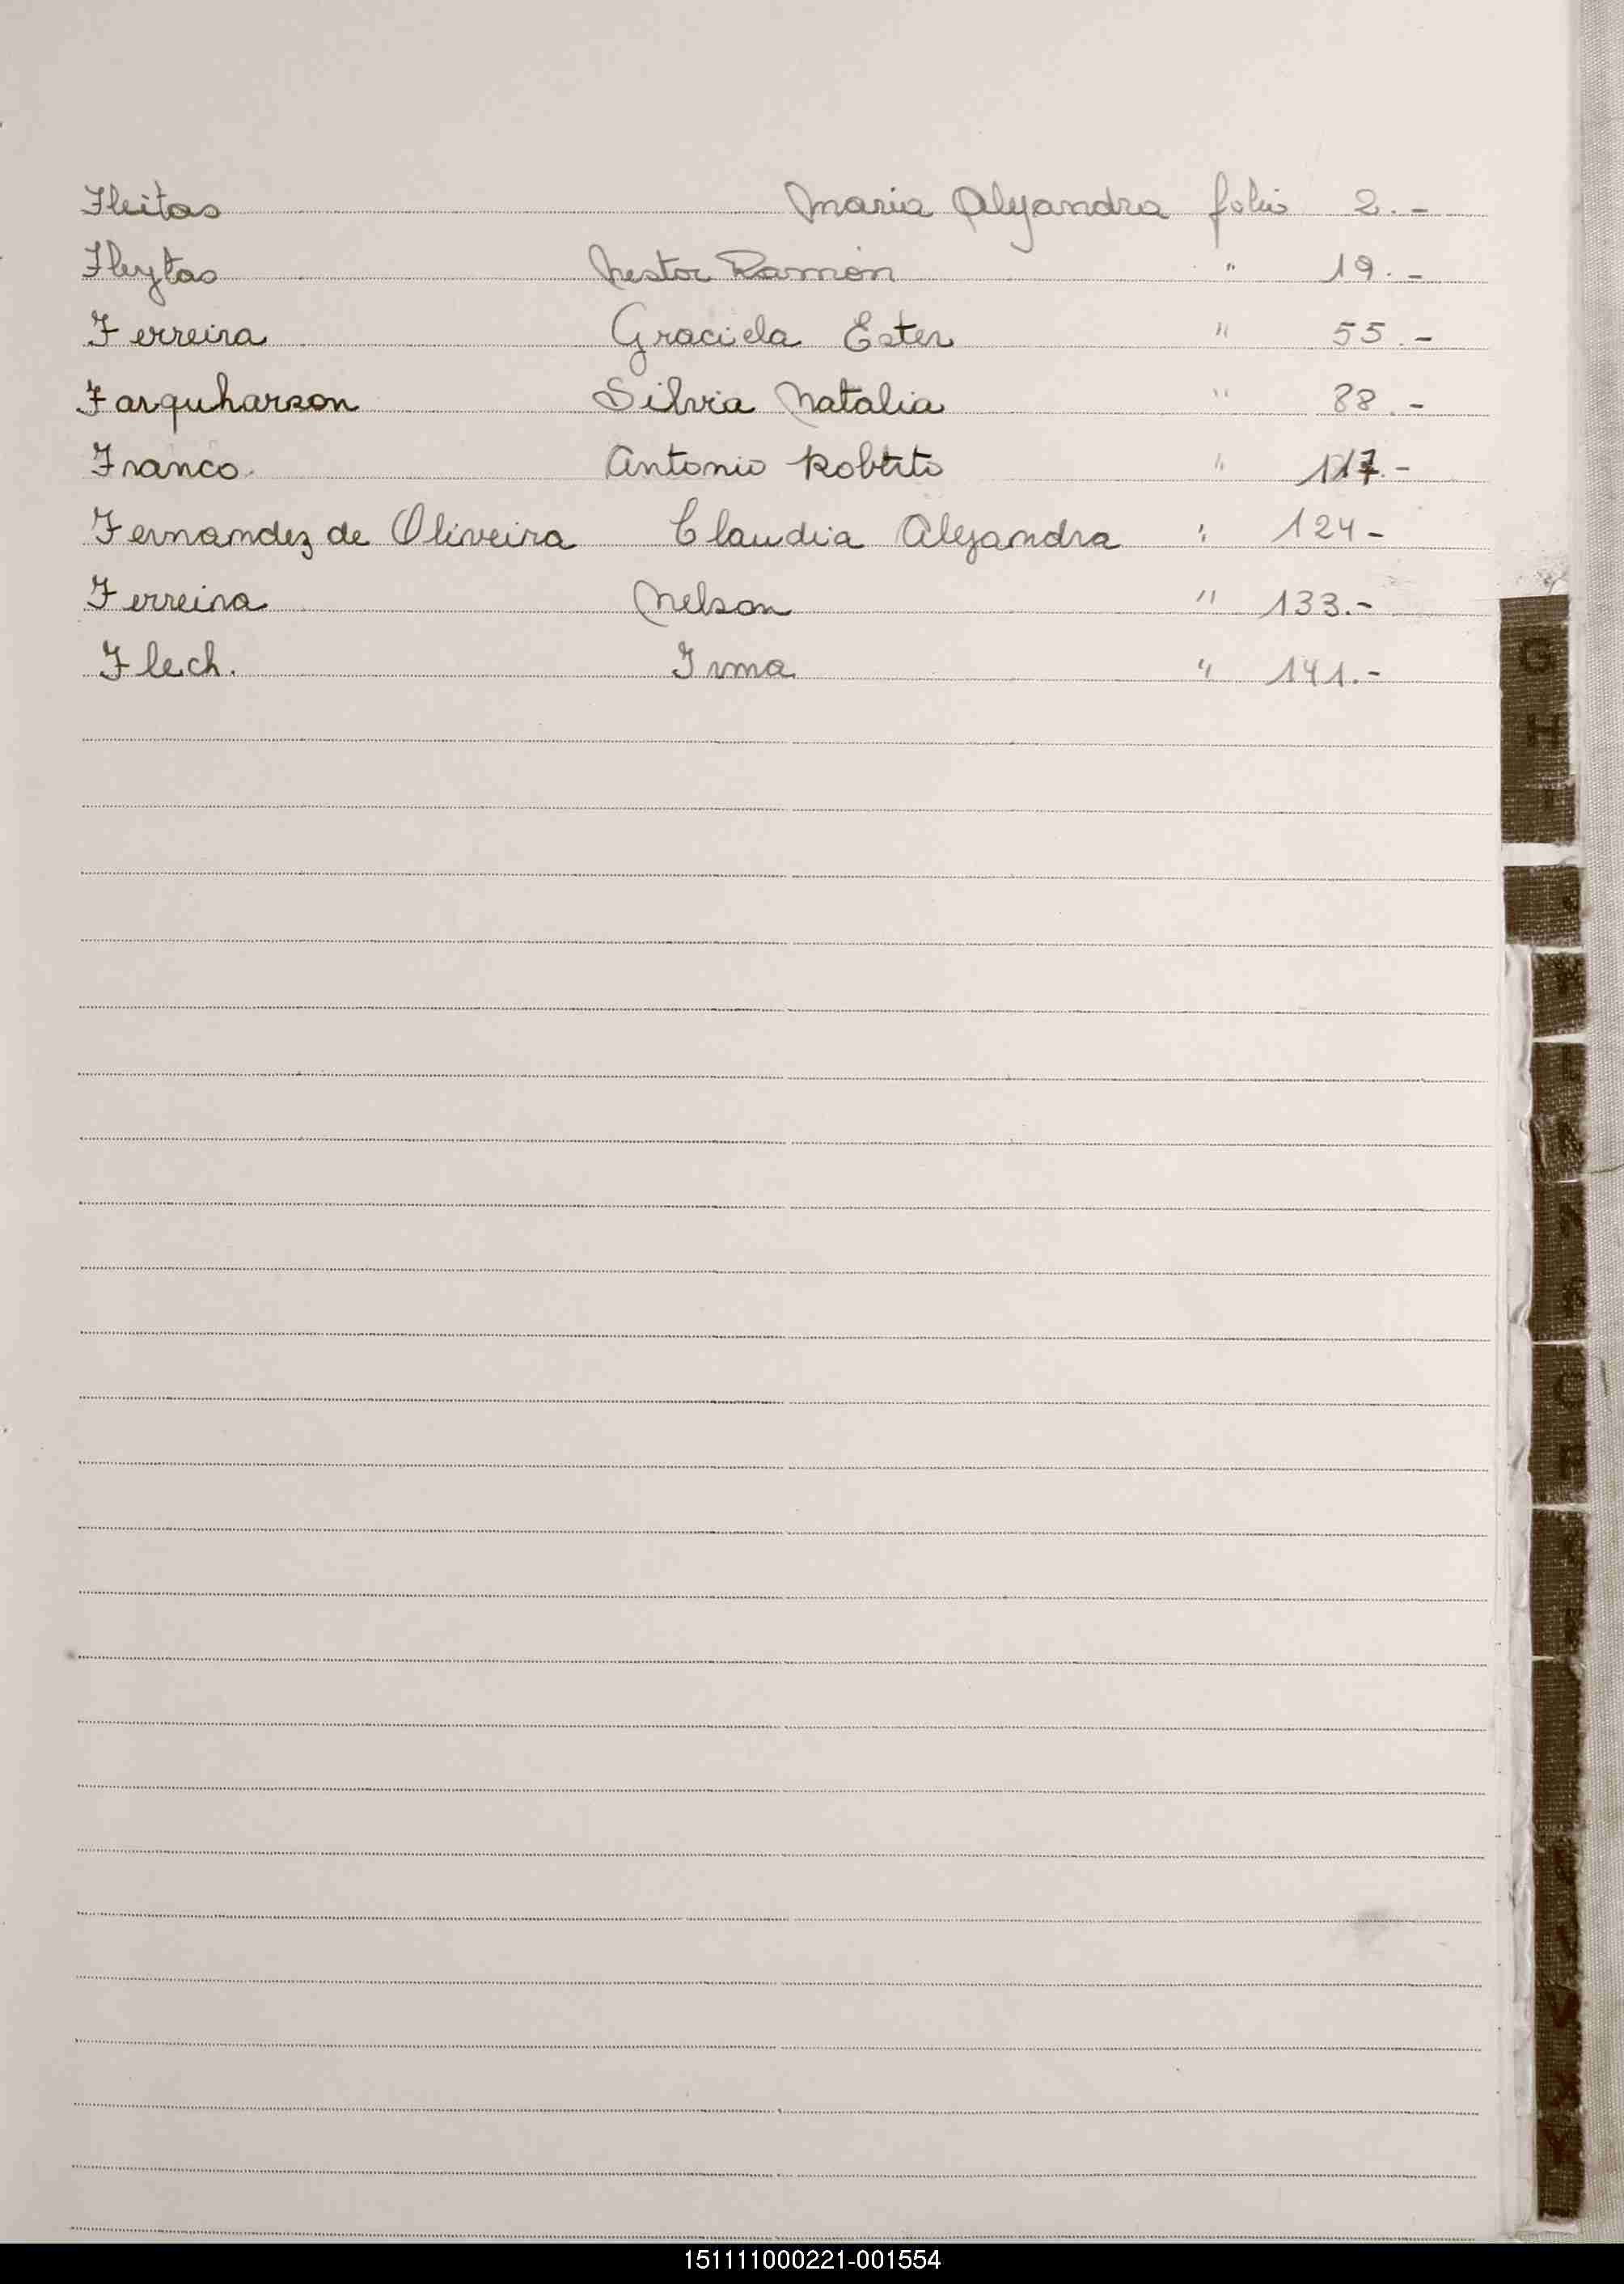 Fleitas Maria Alejandra folio 2.-
Fleytas Nestor Ramón " 19.-
Ferreira Graciela Ester " 55.-
Farquharson Silvia Natalia " 88.-
Franco. Antonio Roberto " 117.-
Fernandez de Oliveira Claudia Alejandra " 124-
Ferreira Nelson " 133.-
Flech. Irma " 141.-
G
H
I
151111000221-001554